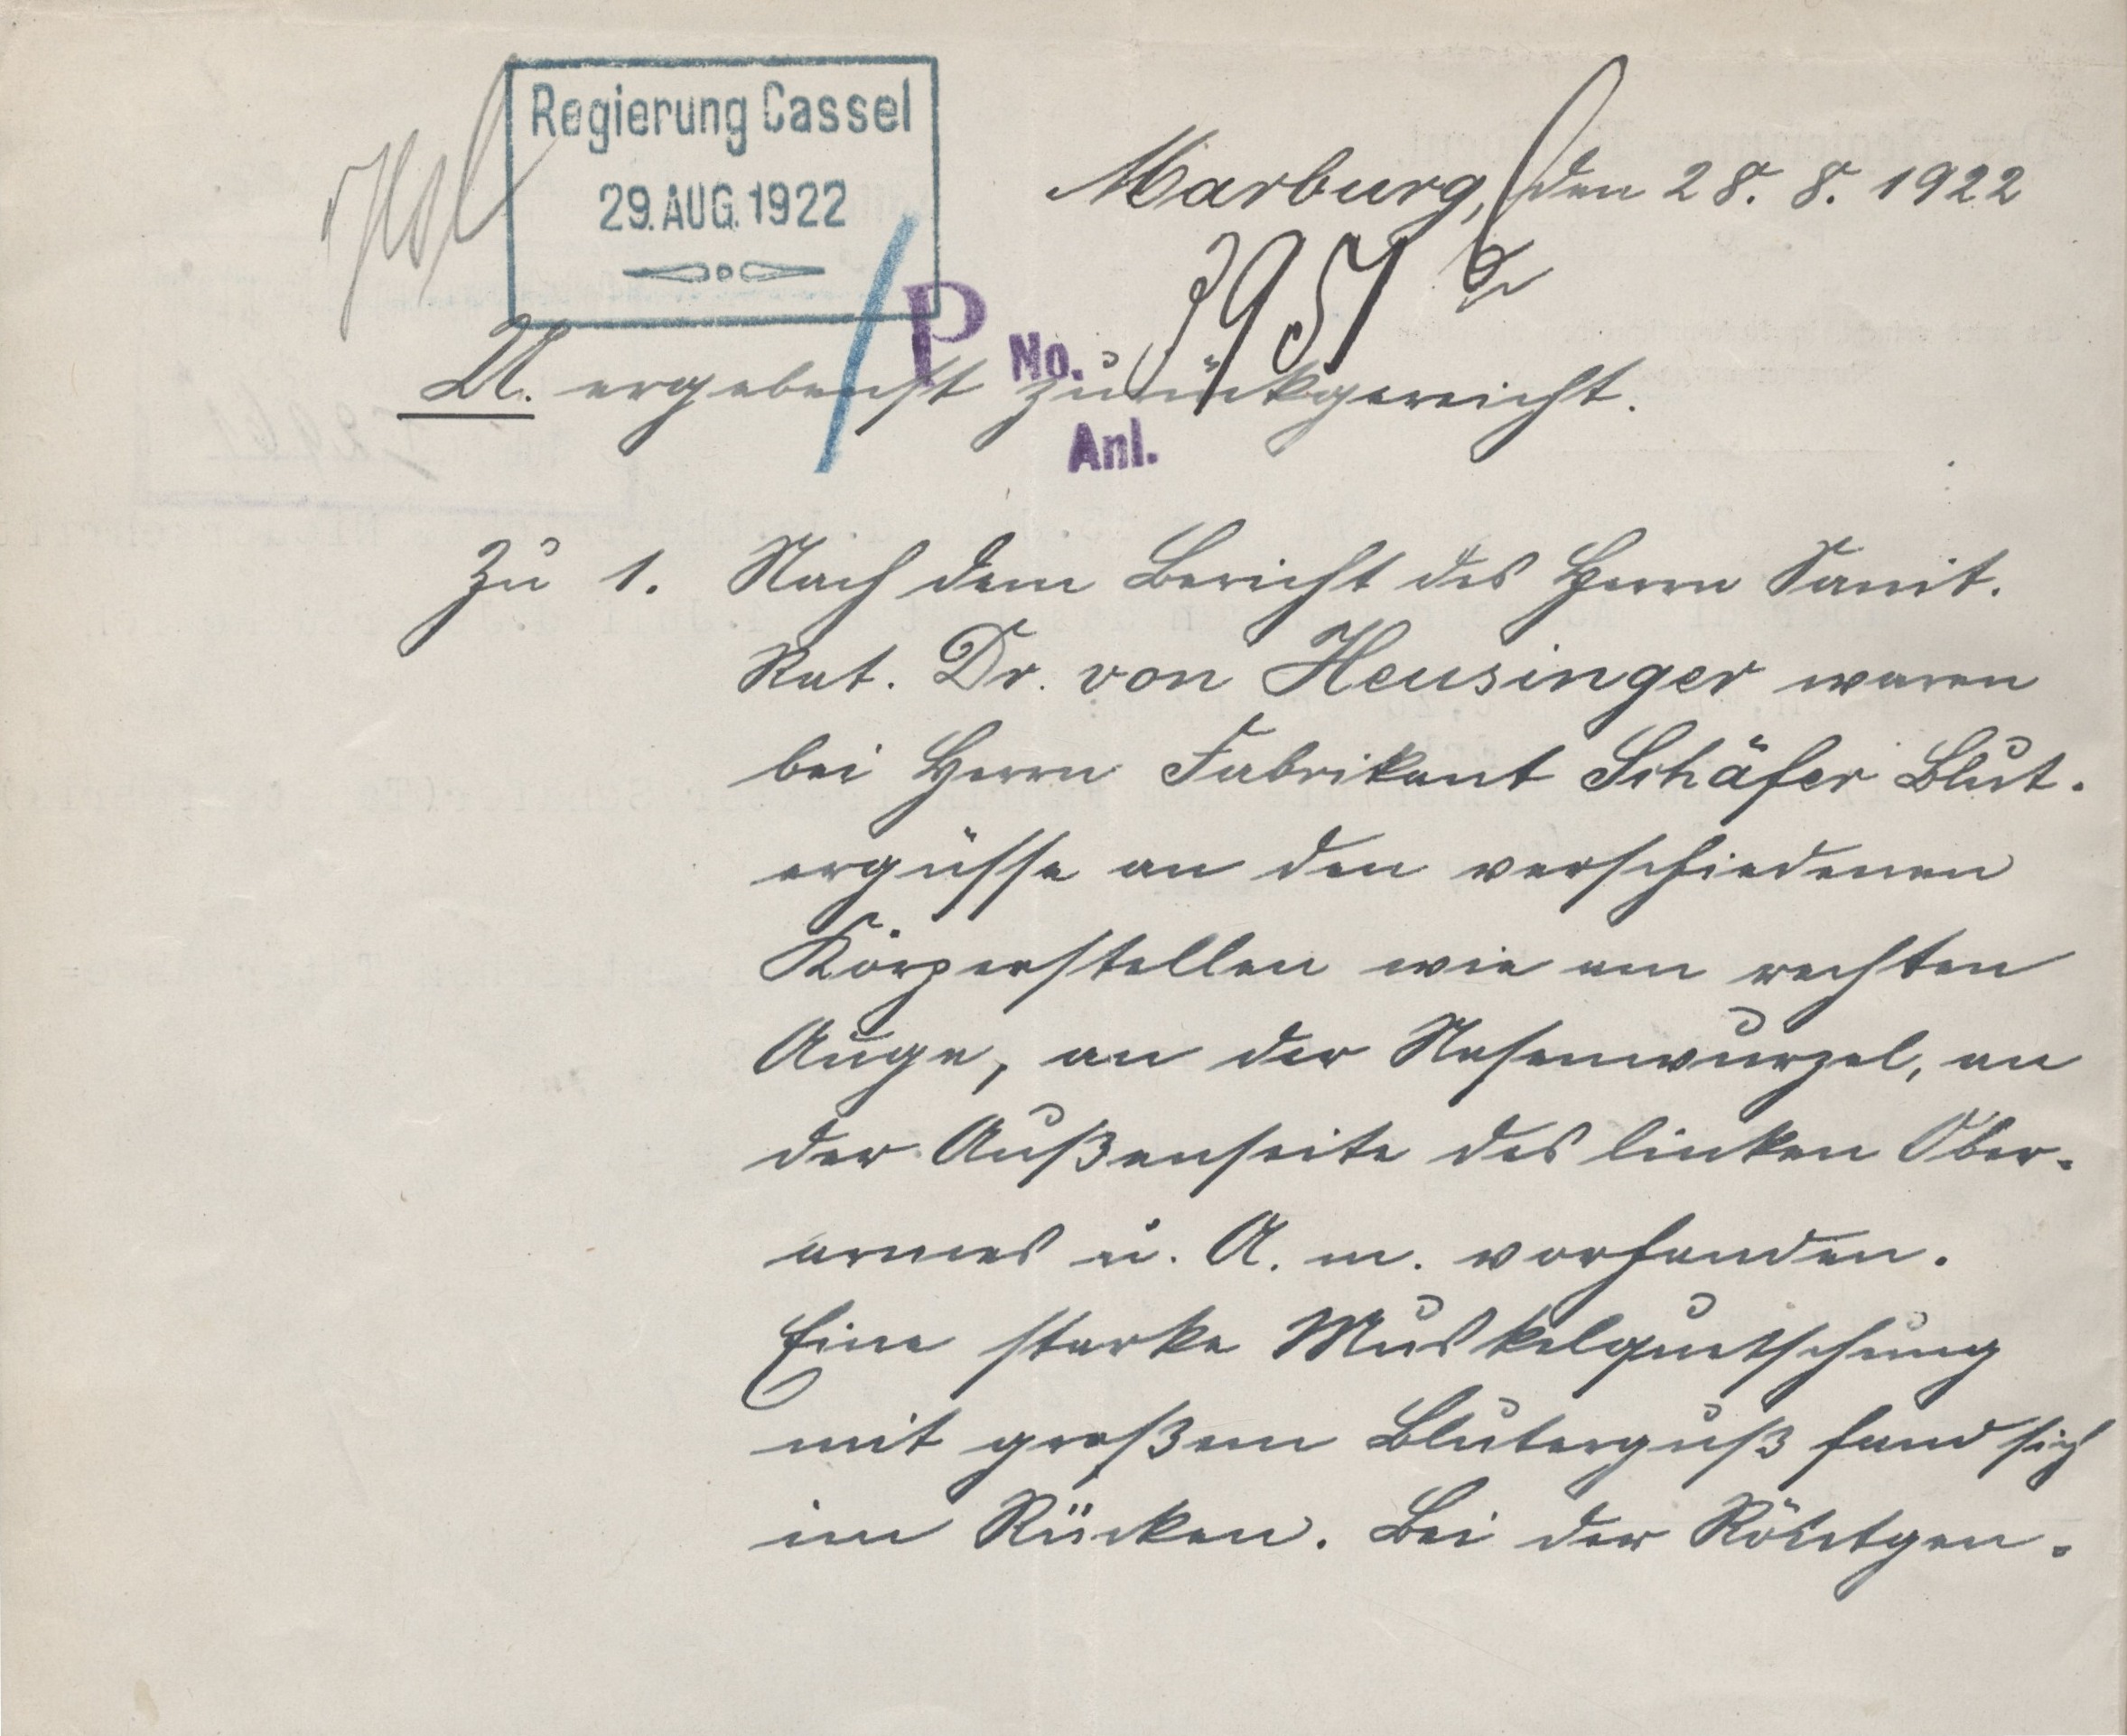 Regierung Cassel
29. AUG. 1922
Marburg, den 28. 8. 1922
P No. 3951
U. ergebenst zurückgereicht.
Anl.
Zu 1. Nach dem Bericht des Herrn Sanit.
Rat. Dr. von Heusinger waren
bei Herrn Fabrikant Schäfer Blut-
ergüsse an den verschiedenen
Körperstellen wie am rechten
Auge, an der Nasenwurzel, an
der Außenseite des linken Ober-
armes u. A. m. vorhanden.
Eine starke Muskelquetschung
mit großem Bluterguß fand sich
im Rücken. Bei der Röntgen-